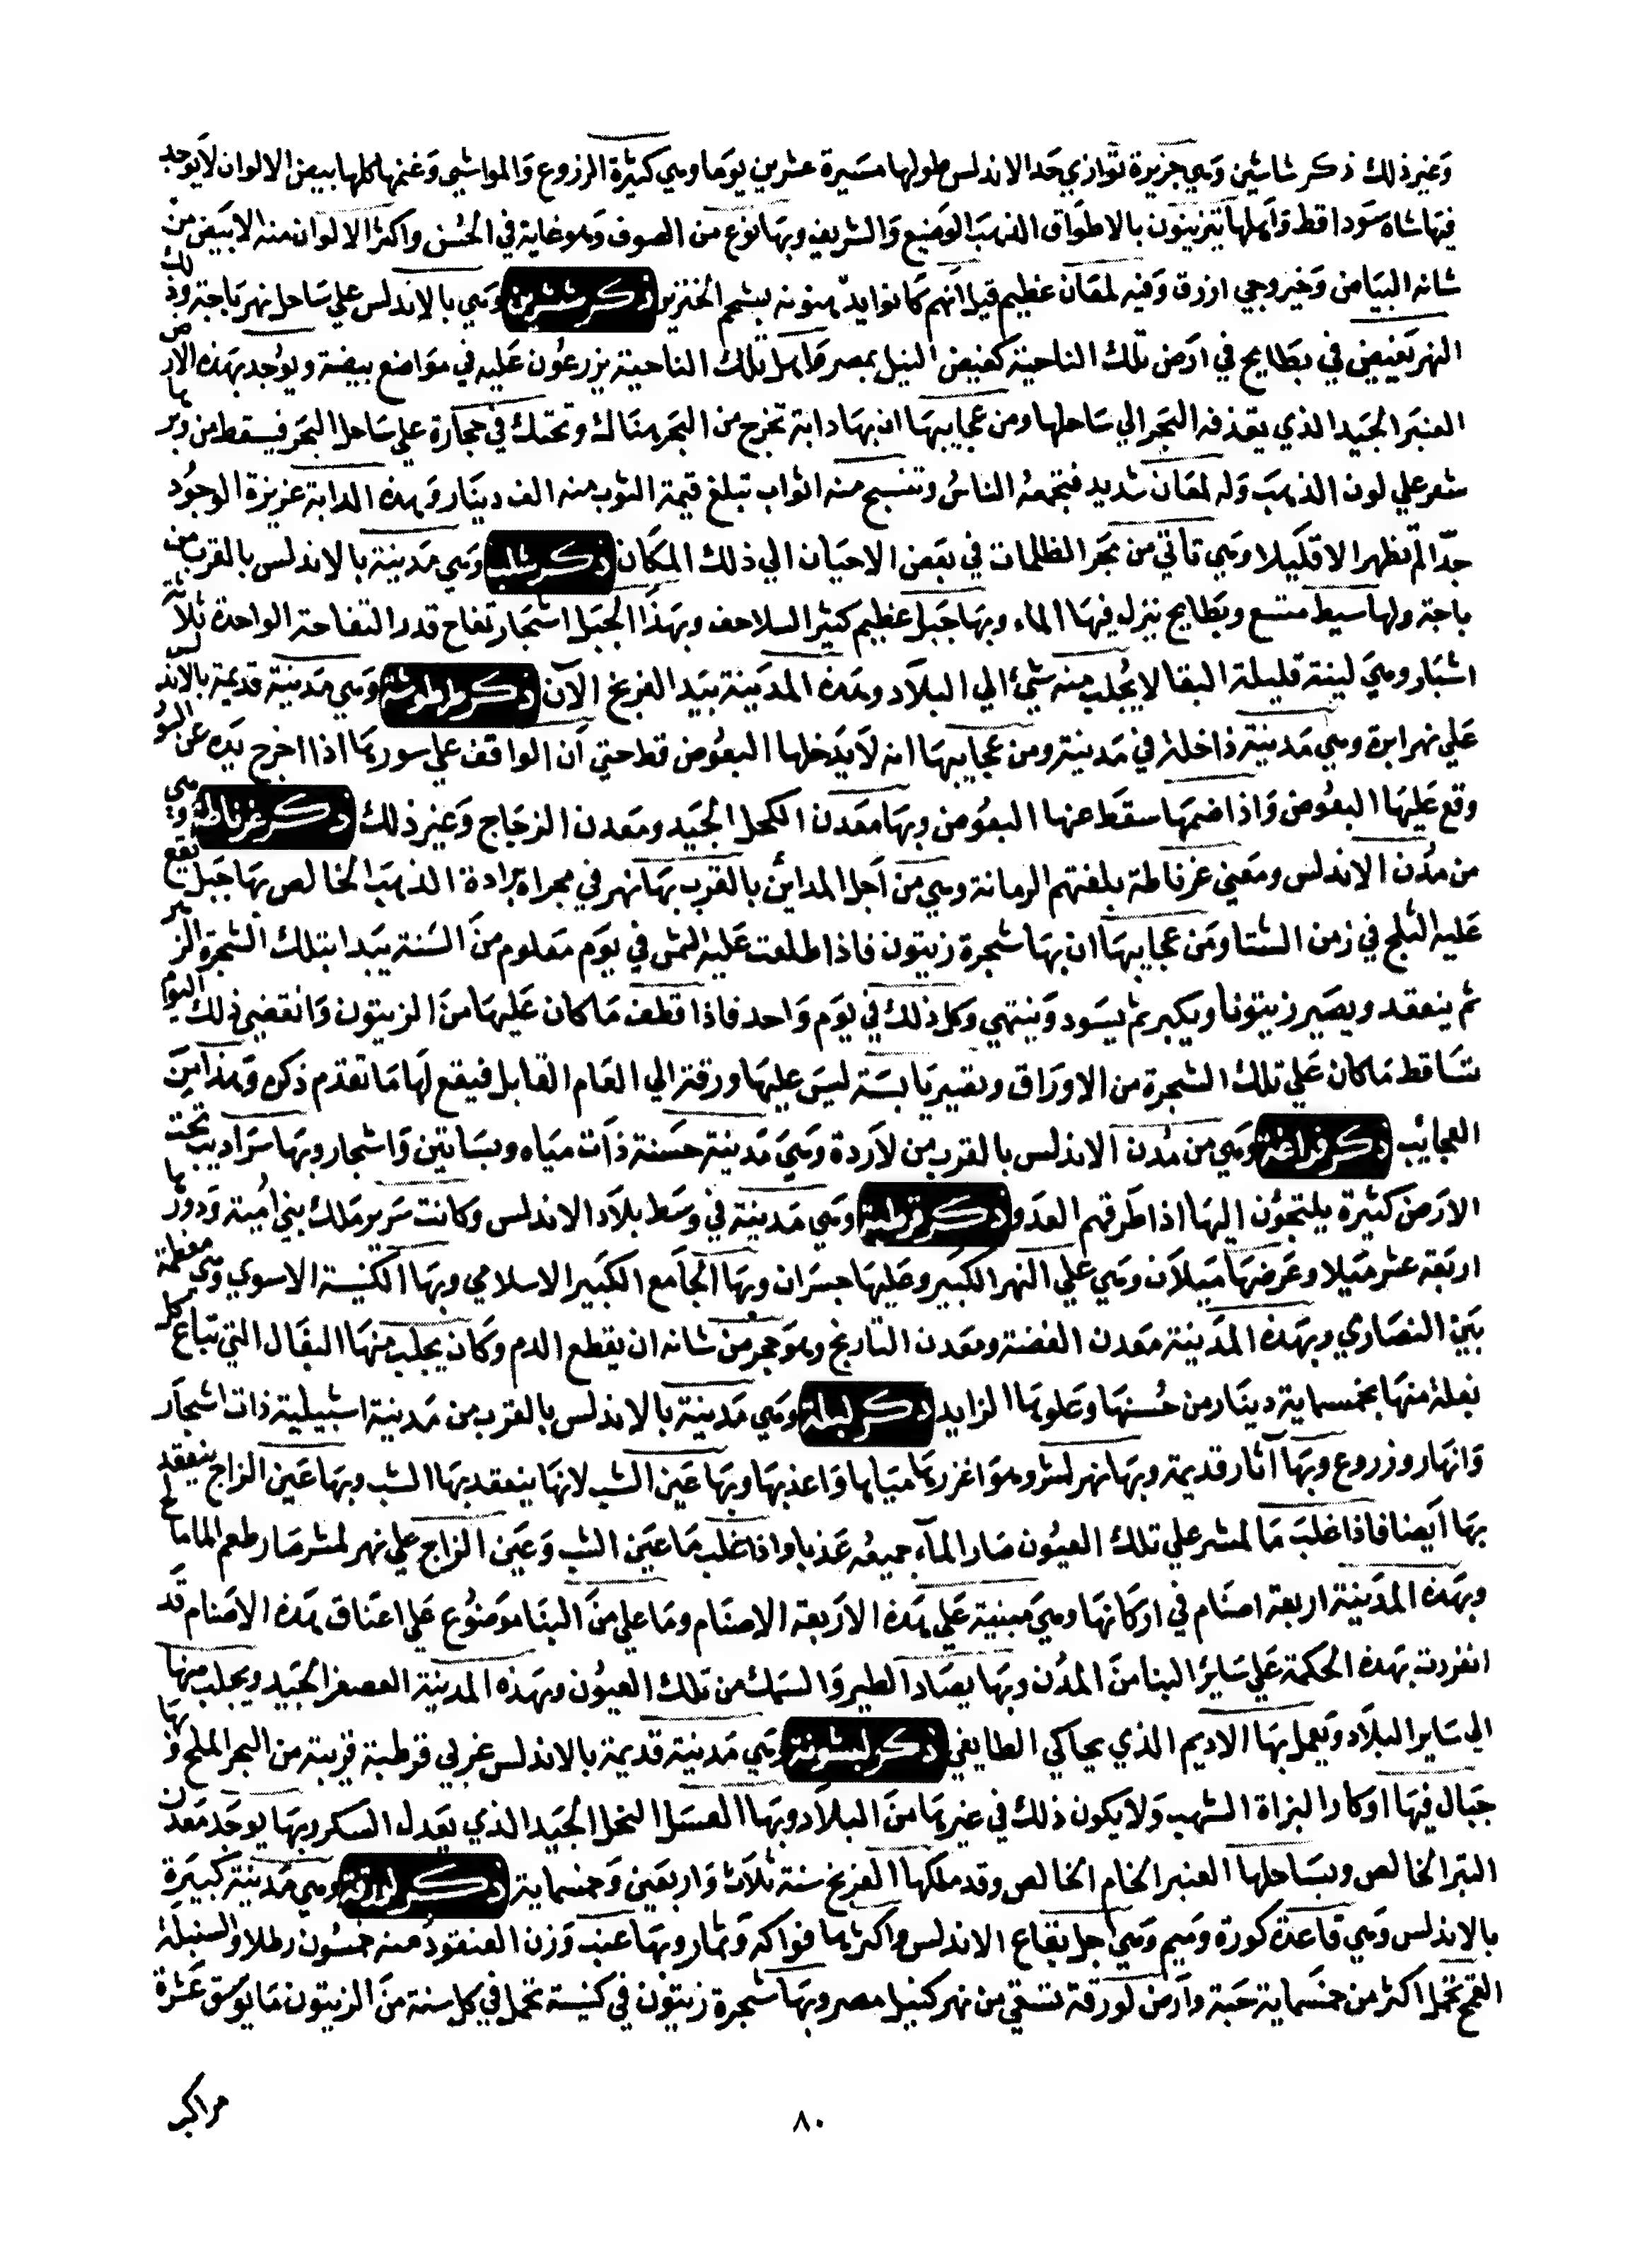 وغير ذلك ذكر شاشين وهي جزيرة توازي حد الاندلس طولها مسيرة عشرين يوما وهي كثيرة الزروع والمواشي وغنمها كلها بيض الالوان لا يوجد
فيها شاة سودا قط واهلها يتزينون بالاطواق الذهب الوضيع والشريف وبها نوع من الصوف وهو غاية في الحسن واكثر الالوان منه الابيض من
شانه البياض وخيروجي ازرق وفيه لمعان عظيم قيل انهم كانوا يدهنونه بشحم الخنزير ذكر شنترين وهي بالاندلس علي ساحل نهر باجة وذلك
النهر يفيض في بطايح في ارض تلك الناحية كفيض النيل بمصر واهل تلك الناحية يزرعون عليه في مواضع بيضة ويوجد بهذه الارض
العنبر الجيد الذي يقذفه البحر الي ساحلها ومن عجايبها ان بها دابة تخرج من البحر هناك وتحتك في حجارة علي ساحل البحر فيسقط من وبرها
شعر علي لون الذهب وله لمعان شديد فتجمعه الناس وتنسج منه اثواب تبلغ قيمة الثوب منه الف دينار وهذه الدابة عزيزة الوجود
جدا لم تظهر الا قليلا وهي تاتي من بحر الظلمات في بعض الاحيان الي ذلك المكان ذكر شلب وهي مدينة بالاندلس بالقرب من
باجة ولها سيط متسع وبطايح ينزل فيها الماء وبها جبل عظيم كثير السلاحف وبهذا الجبل اشجار تفاح قدر التفاحة الواحدة ثلاثة
اشبار وهي لينة قليلة البقا لا يجلب منه شئ الي البلاد وهذه المدينة بيد الفرنج الآن ذكر طرطوشة وهي مدينة قديمة بالاندلس
علي نهر ابرة وهي مدينة داخلة في مدينة ومن عجايبها انه لا يدخلها البعوض قط حتي ان الواقف علي سورها اذا اخرج يده عن السور
وقع عليها البعوض واذا ضمها سقط عنها البعوض وبها معدن الكحل الجيد ومعدن الزجاج وغير ذلك ذكر غرناطة وهي
من مدن الاندلس ومعني غرناطة بلغتهم الرمانة وهي من اجل المداين بالقرب بها نهر في مجراه برادة الذهب الخالص بها جبل يقع
عليه الثلج في زمن الشتا ومن عجايبها ان بها شجرة زيتون فاذا طلعت عليه الشمس في يوم معلوم من السنة يبدا بتلك الشجرة الزهر
ثم ينعقد ويصير زيتونا ويكبر ثم يسود وينتهي وكل ذلك في يوم واحد فاذا قطف ما كان عليها من الزيتون وانقضي ذلك اليوم
تساقط ما كان علي تلك الشجرة من الاوراق وتصير يابسة ليس عليها ورقة الي العام القابل فيقع لها ما تقدم ذكره وهذا من
العجايب ذكر فراغة وهي من مدن الاندلس بالقرب من لاردة وهي مدينة حسنة ذات مياه وبساتين واشجار وبها سراديب تحت
الارض كثيرة يلتجئون اليها اذا طرقهم العدو ذكر قرطبة وهي مدينة في وسط بلاد الاندلس وكانت سرير ملك بني امية ودورها
اربعة عشر ميلا وعرضها ميلان وهي علي النهر الكبير وعليها جسران وبها الجامع الكبير الاسلامي وبها الكنيسة الاسوي وهي معظمة
بين النصاري وبهذه المدينة معدن الفضة ومعدن التاريخ وهو حجر من شانه ان يقطع الدم وكان يجلب منها البغال التي تباع كل
بغلة منها بخمسماية دينار من حسنها وعلوها الزايد ذكر لبلة وهي مدينة بالاندلس بالقرب من مدينة اشبيلية ذات اشجار
وانهار وزروع وبها آثار قديمة وبها نهر لمشر وهو اغزرها مياها واعذبها وبها عين الشب لانها ينعقد بها الشب وبها عين الزاج ينعقد
بها ايضا فاذا غلب ما لمشر علي تلك العيون صار الماء جميعه عذبا واذا غلب ما عين الشب وعين الزاج علي نهر لمشر صار طعم الما مالح
وبهذه المدينة اربعة اصنام في اركانها وهي مبنية علي هذه الاربعة الاصنام وما علي من البنا موضوع علي اعناق هذه الاصنام قد
انفردت بهذه الحكمة علي ساير البنا من المدن وبها يصاد الطير والسمك من تلك العيون وبهذه المدينة العصفر الجيد ويجلب منها
الي ساير البلاد ويعمل بها الاديم الذي يحاكي الطايفي ذكر لشبونة وهي مدينة قديمة بالاندلس غربي قرطبة قريبة من البحر الملح وبها
جبال فيها اوكار البزاة الشهب ولا يكون ذلك في غيرها من البلاد وبها العسل النحل الجيد الذي يعدل السكر وبها يوجد معدن
التبر الخالص وبساحلها العنبر الخام الخالص وقد ملكها الفرنج سنة ثلاث واربعين وخمسماية ذكر لورقة وهي مدينة كبيرة
بالاندلس وهي قاعدة كورة وميم وهي اجل بقاع الاندلس واكثرها فواكه وثمار وبها عنب وزن العنقود منه خمسون رطلا والسنبلة
القمح تحمل اكثر من خمسماية حبة وارض لورقة تسقي من نهر كنيل مصر وبها شجرة زيتون في كنيسة تحمل في كل سنة من الزيتون ما يوسق عشرة
مراكب
٨٠